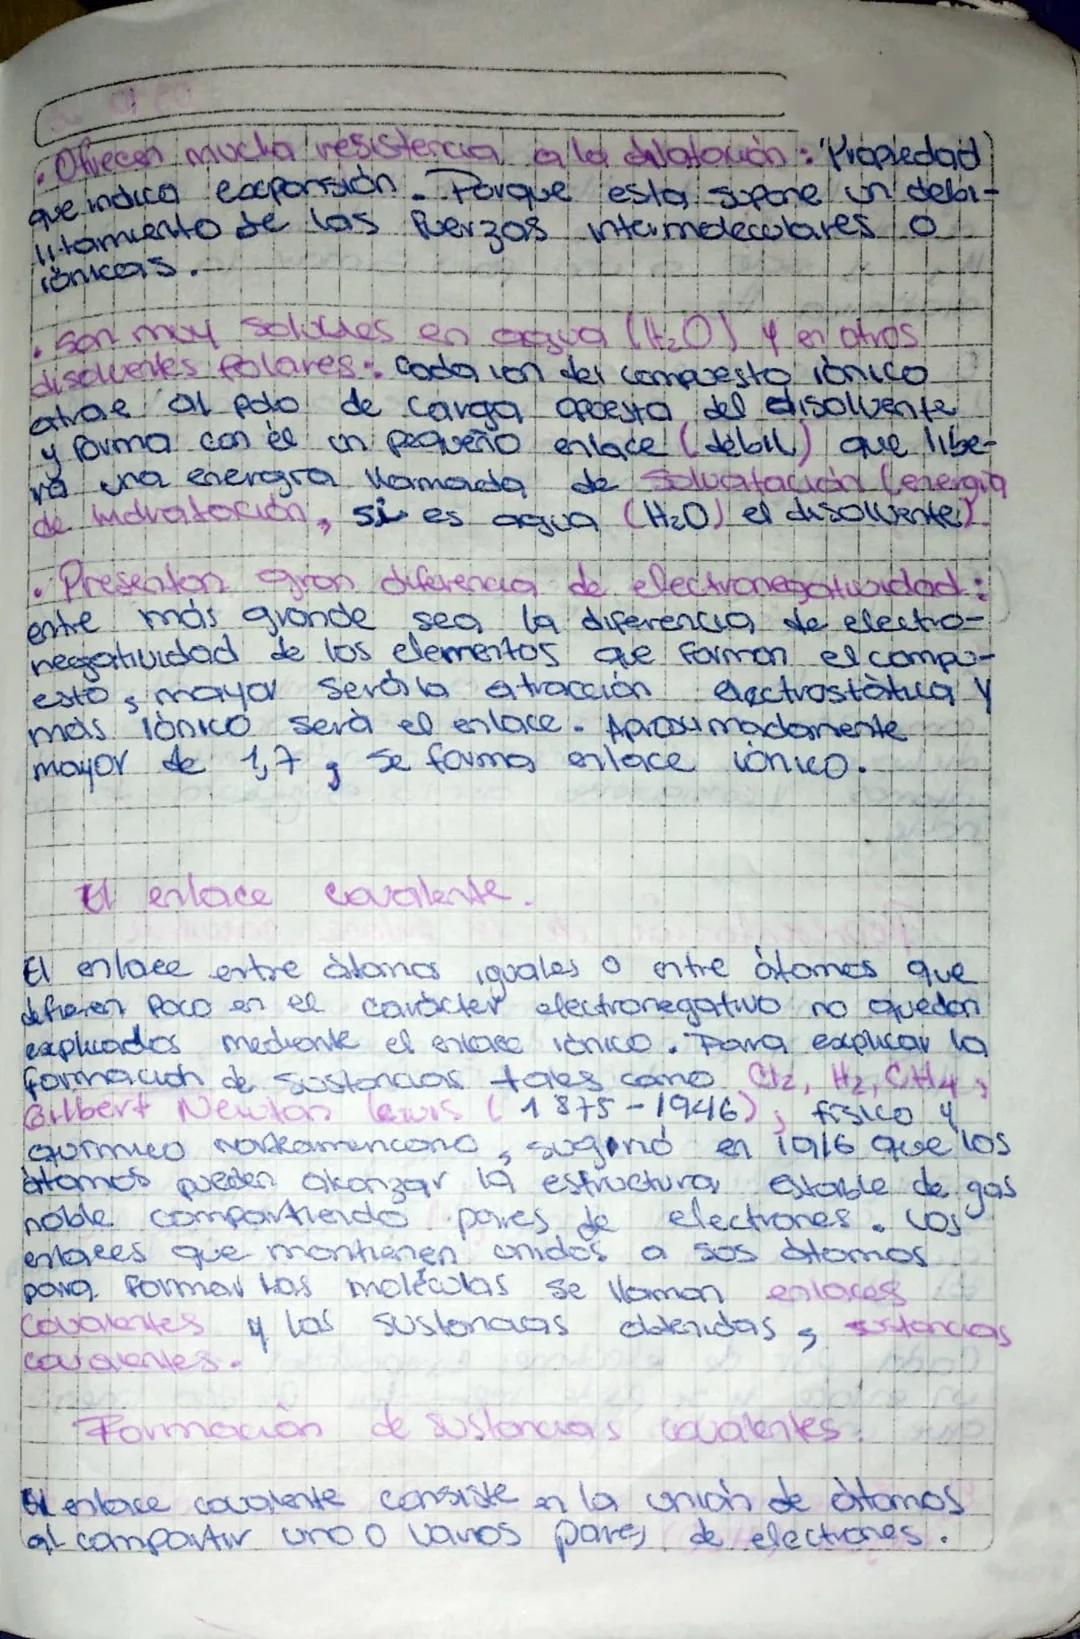 . Ofrecen mucha resistencia a la dilatación: "Propiedad
que indica expansión. Porque esta supone un debi-
litamiento de las fuerzas intermoleculares o
iónicas.
. Son muy solubles en agua (H₂O) y en otros
disolventes Polares: Cada ion del compuesto iónico
atrae al polo de carga opuesta del disolvente
y forma con él un pequeño enlace (débil) que libe-
ra una energía llamada de Solvatación (energía
de hidratación, si es agua (H₂O) el disolvente).
. Presentan gran diferencia de electronegatividad:
entre más grande sea la diferencia de electro-
negatividad de los elementos que forman el compu-
esto, mayor será la atracción electrostática y
más iónico será el enlace. Aproximadamente
mayor de 1,7, se forma enlace iónico.
El enlace covalente.
El enlace entre átomos iguales o entre átomos que
difieren Poco en el carácter electronegativo no quedan
explicados mediante el enlace iónico. Para explicar la
formación de sustancias tales como Cl₂, H₂, CH₄,
Gilbert Newton Lewis (1875-1946), físico y
químico norteamericano, sugirió en 1916 que los
átomos pueden alcanzar la estructura estable de gas
noble compartiendo pares de electrones. Los
enlaces que mantienen unidos a sos átomos
para formar las moléculas se llaman enlaces
covalentes y las sustancias obtenidas, sustancias
covalentes.
Formación de sustancias covalentes.
El enlace covalente consiste en la unión de átomos
al compartir uno o varios pares de electrones.